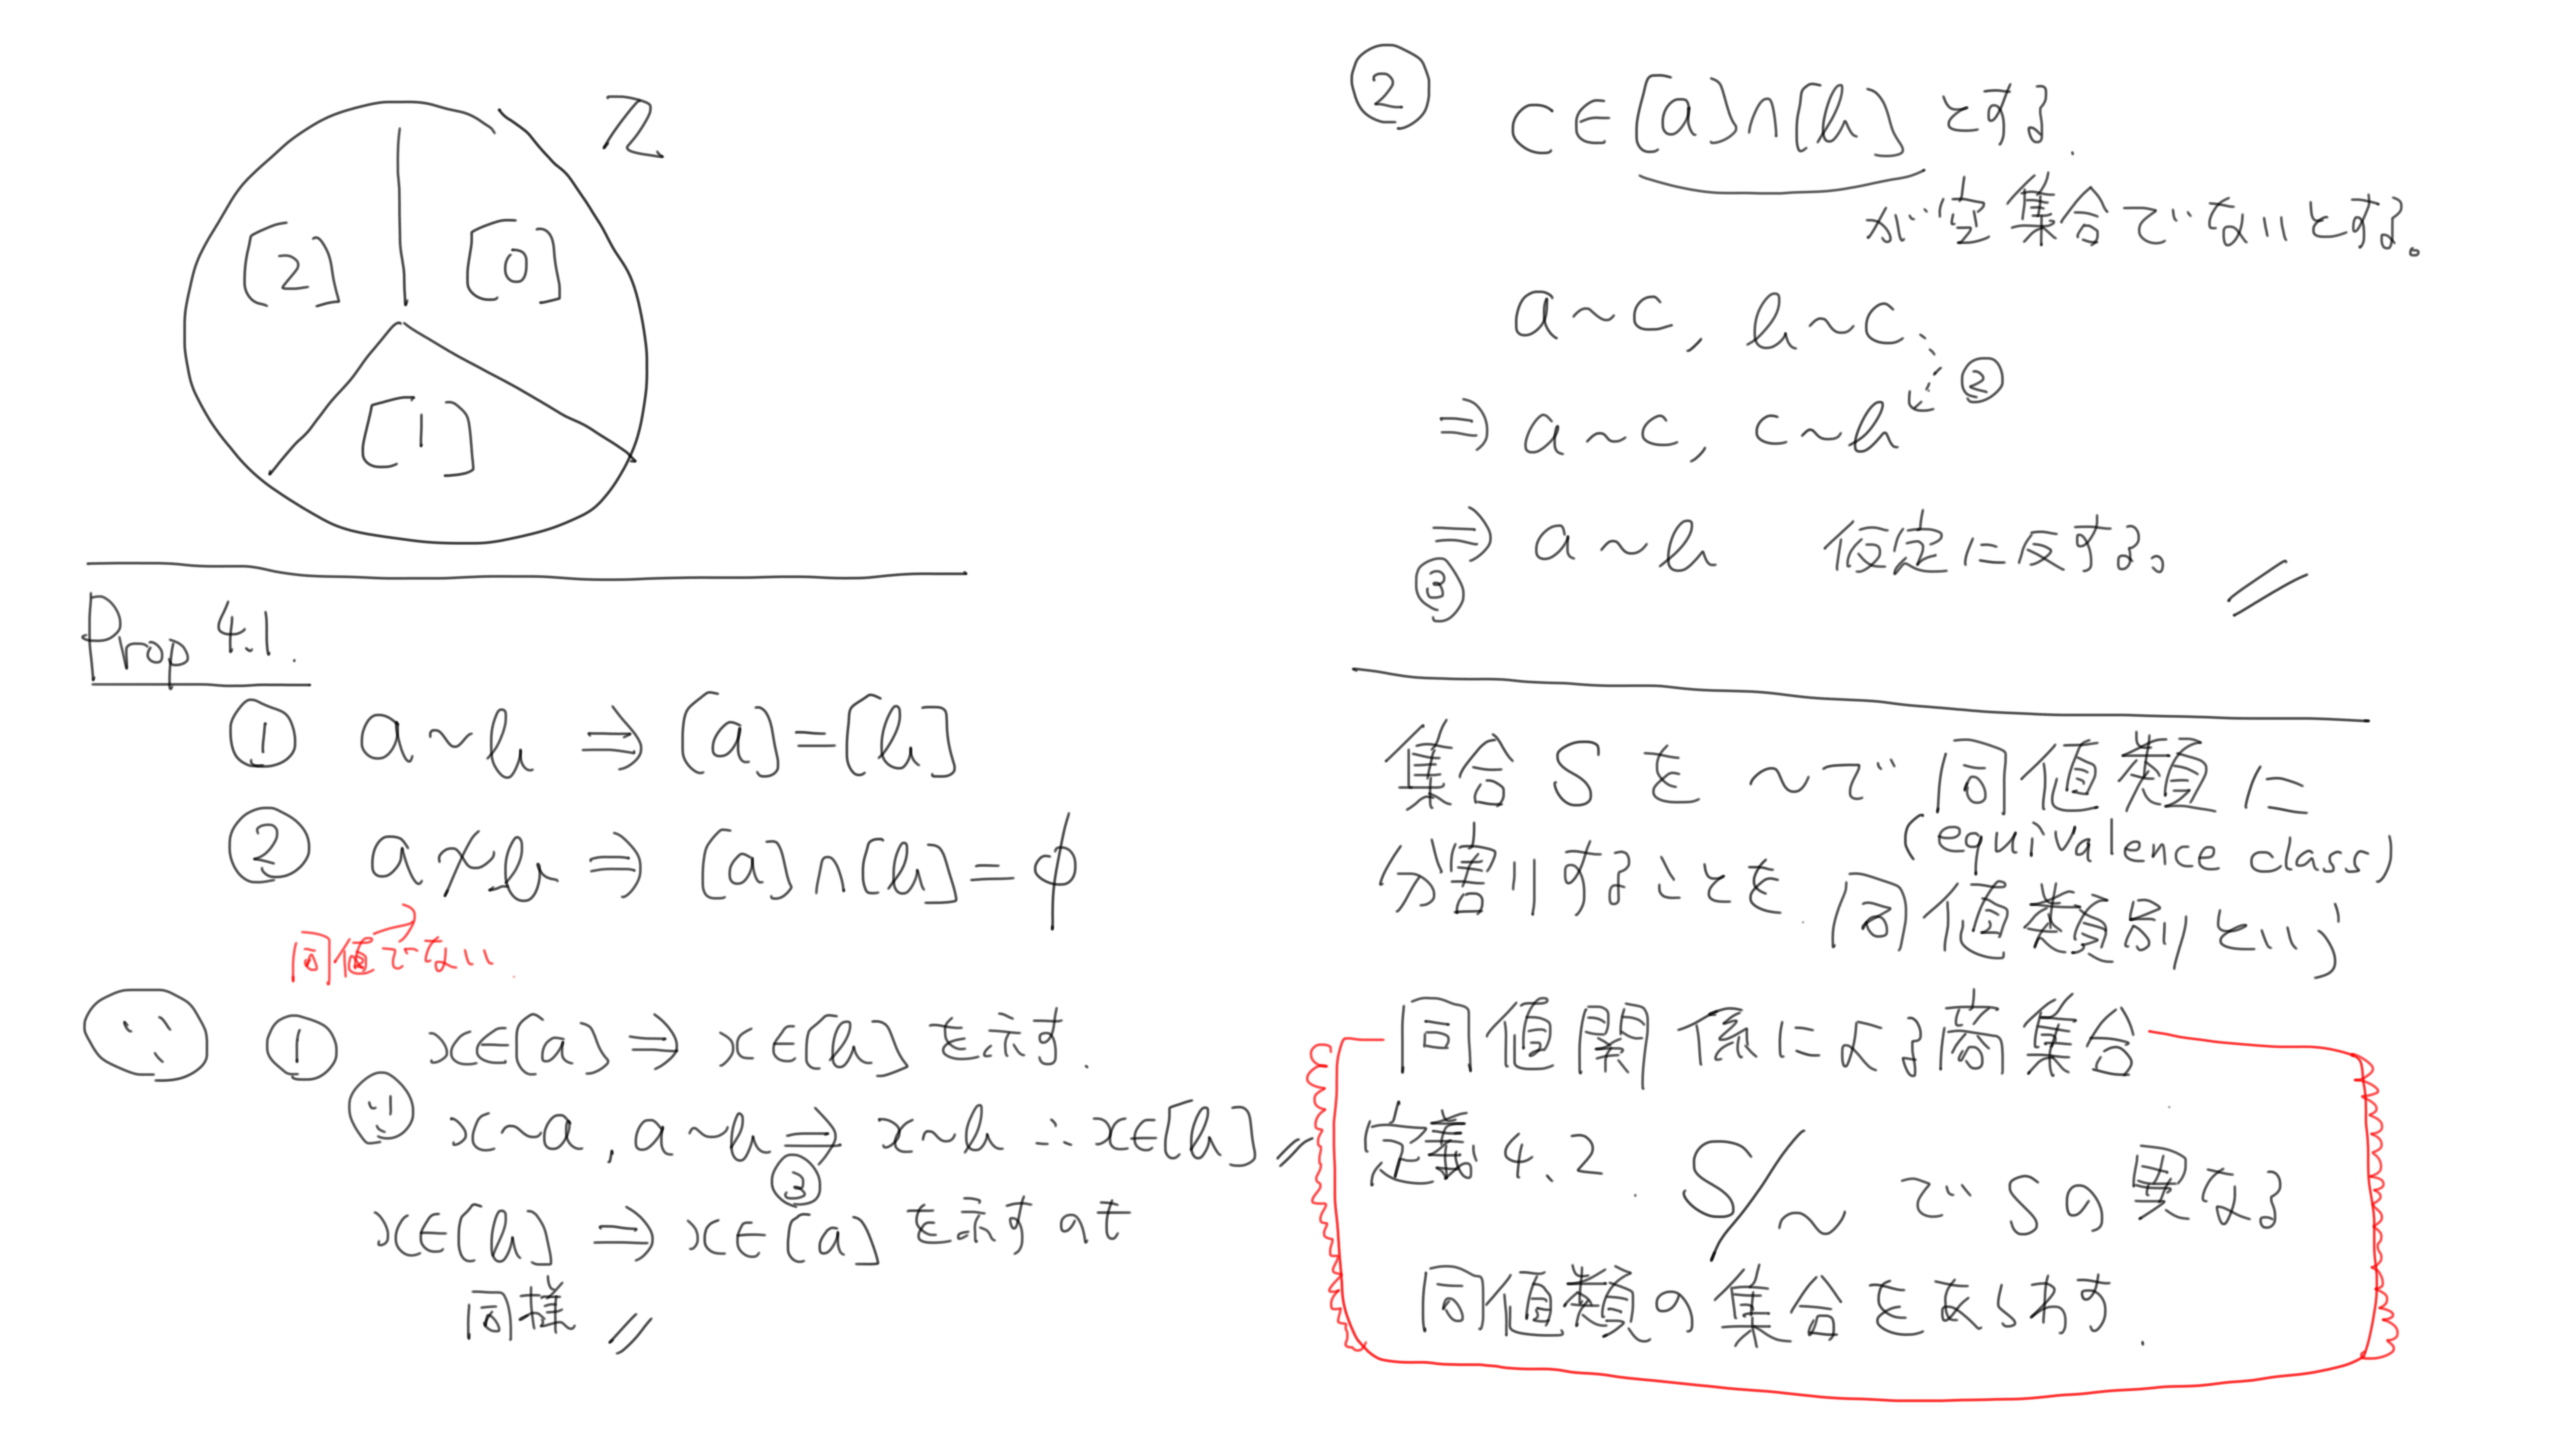 ℤ
[2] [0]
[1]
Prop 4.1.
① a~b ⇒ [a]=[b]
② a≁b ⇒ [a]∩[b]=φ
同値でない
∵ ① x∈[a] ⇒ x∈[b] を示す.
∵ x~a, a~b ⇒ x~b ∴ x∈[b] //
③
x∈[b] ⇒ x∈[a] を示すのも
同様 //
② c∈[a]∩[b] とする.
が空集合でないとする。
a~c, b~c
②
⇒ a~c, c~b
⇒ a~b 仮定に反する。 //
③
集合 S を ~で 同値類に
(equivalence class)
分割することを 同値類別という
同値関係による商集合
定義 4.2. S/~ で S の異なる
同値類の集合をあらわす.